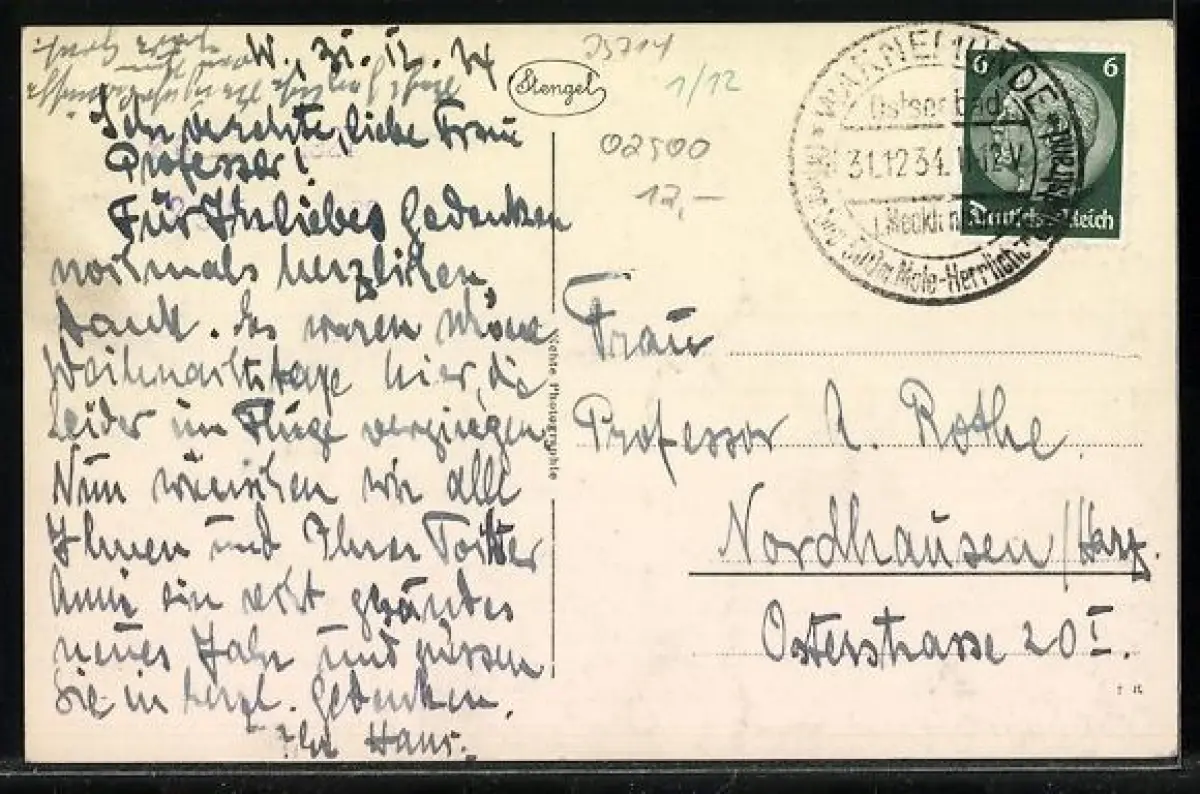 W., 31. 12. 34
Sehr verehrte, liebe Frau
Professor!
Für Ihr liebes Gedenken
nochmals herzlichen
Dank. Es waren schöne
Weihnachtstage hier, die
leider im Fluge vergingen.
Nun wünschen wir alle
Ihnen und Ihrer Tochter
Anni ein recht gesundes
neues Jahr und grüssen
Sie in herzl. Gedenken.
Ihr Hans.
Stengel
35714
1/12
02500
12,-
WARNEMÜNDE
Ostseebad
31.12.34.
12 V
Mole-Herrlich
6 6
Deutsches Reich
Photographie
Frau
Professor A. Rothe
Nordhausen/Harz.
Osterstrasse 20 I.